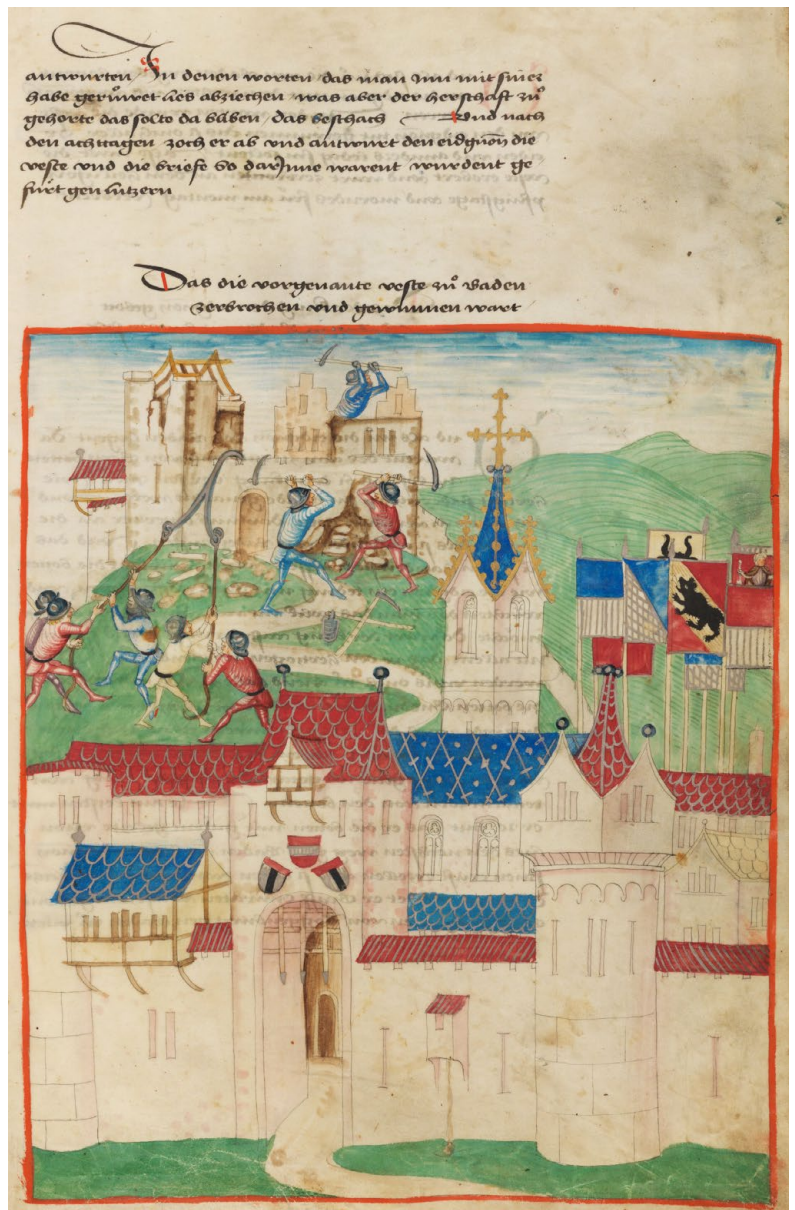 antwurten / In denen worten das man inn mit siner
habe gerůwet lies abziechen was aber der herschaft zů
gehorte das solte da bliben / das beschach Und nach
den achttagen zoch er ab vnd antwurt den eidgnoͤn die
veste vnd die briefe so darJnne warent wurdent ge
fürt gen lutzern
Das die vorgenante veste zů Baden
zerbrochen vnd gewunnen wart